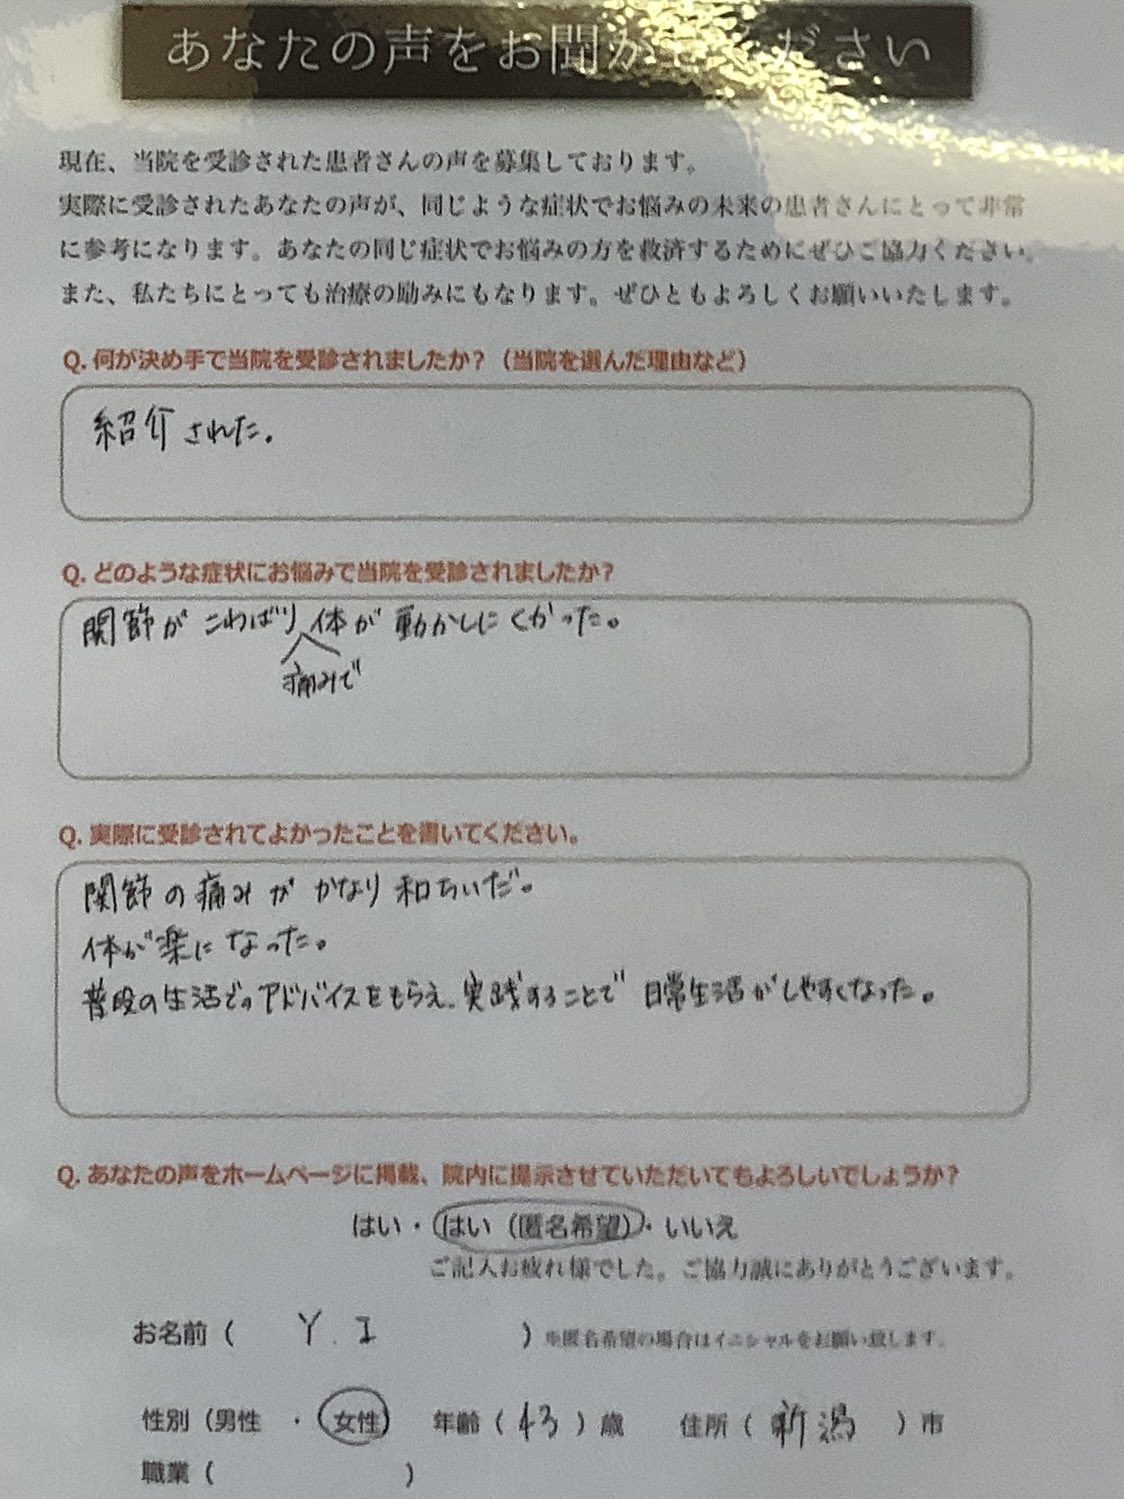 あなたの声をお聞かせください
現在、当院を受診された患者さんの声を募集しております。
実際に受診されたあなたの声が、同じような症状でお悩みの未来の患者さんにとって非常
に参考になります。あなたの同じ症状でお悩みの方を救済するためにぜひご協力ください。
また、私たちにとっても治療の励みにもなります。ぜひともよろしくお願いいたします。
Q. 何が決め手で当院を受診されましたか？（当院を選んだ理由など）
紹介された。
Q. どのような症状にお悩みで当院を受診されましたか？
関節がこわばり体が動かしにくかった。
痛みで
Q. 実際に受診されてよかったことを書いてください。
関節の痛みがかなり和らいだ。
体が楽になった。
普段の生活でのアドバイスをもらえ、実践することで日常生活がしやすくなった。
Q. あなたの声をホームページに掲載、院内に提示させていただいてもよろしいでしょうか？
はい・はい（匿名希望）・いいえ
ご記入お疲れ様でした。ご協力誠にありがとうございます。
お名前（ Y.I ）※匿名希望の場合はイニシャルをお願い致します。
性別（男性 ・ 女性） 年齢（ 43 ）歳 住所（ 新潟 ）市
職業（ ）